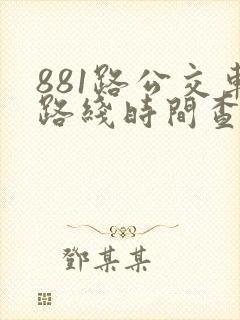 881路公交車
路綫時間查
鄧某某